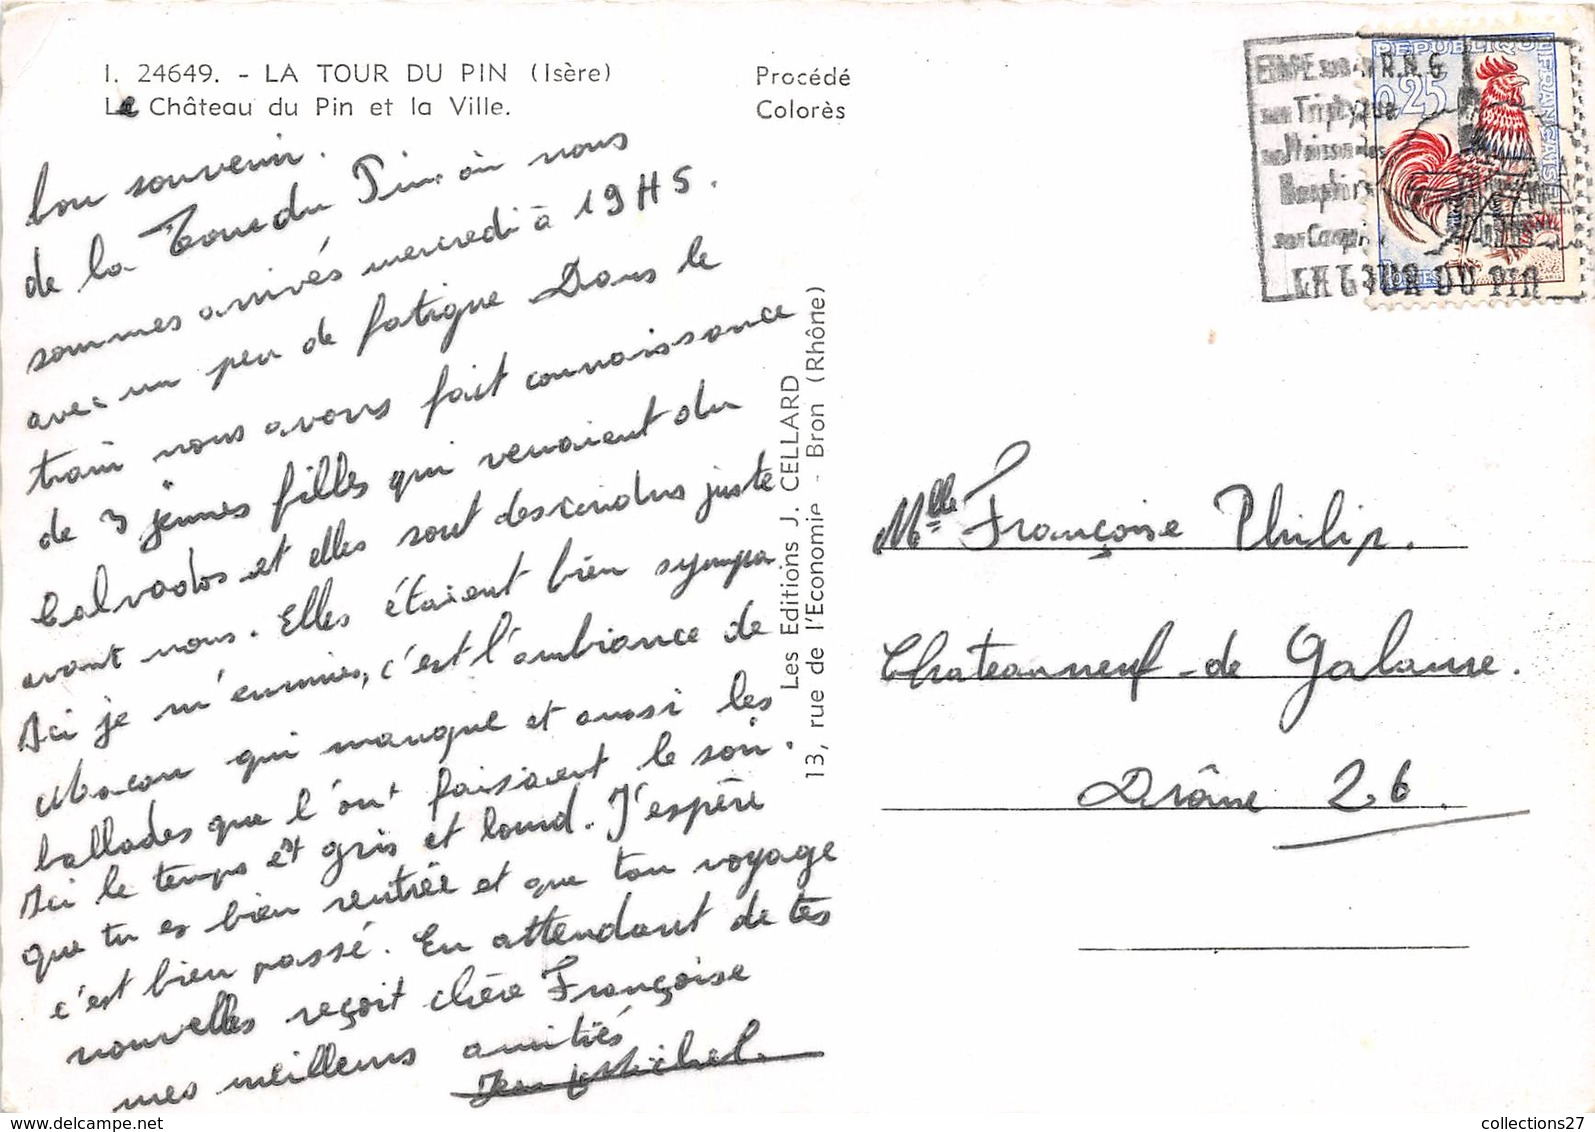 I. 24649. - LA TOUR DU PIN (Isère)
Le Château du Pin et la Ville.
Procédé
Colorès
bon souvenir.
de la Tour du Pin où nous
sommes arrivés mercredi à 19H5.
avec un peu de fatigue Dans le
train nous avons fait connaissance
de 3 jeunes filles qui venaient du
Calvados et elles sont descendus juste
avant nous. Elles étaient bien sympa
Ici je m'ennuies, c'est l'ambiance de
Macon qui manque et aussi les
ballades que l'ont faisaient le soir.
Ici le temps et gris et lourd. J'espère
que tu es bien rentrée et que ton voyage
c'est bien passé. En attendant de tes
nouvelles reçoit chère Françoise
mes meilleurs amitiés
Jean Michel.
Les Editions J. CELLARD
13, rue de l'Economie - Bron (Rhône)
R.N.6
Triptyque
LA TOUR DU PIN
REPUBLIQUE FRANÇAISE
0,25
POSTES
Mlle Françoise Philip.
Chateauneuf-de Galaure.
Drôme 26.
collections27